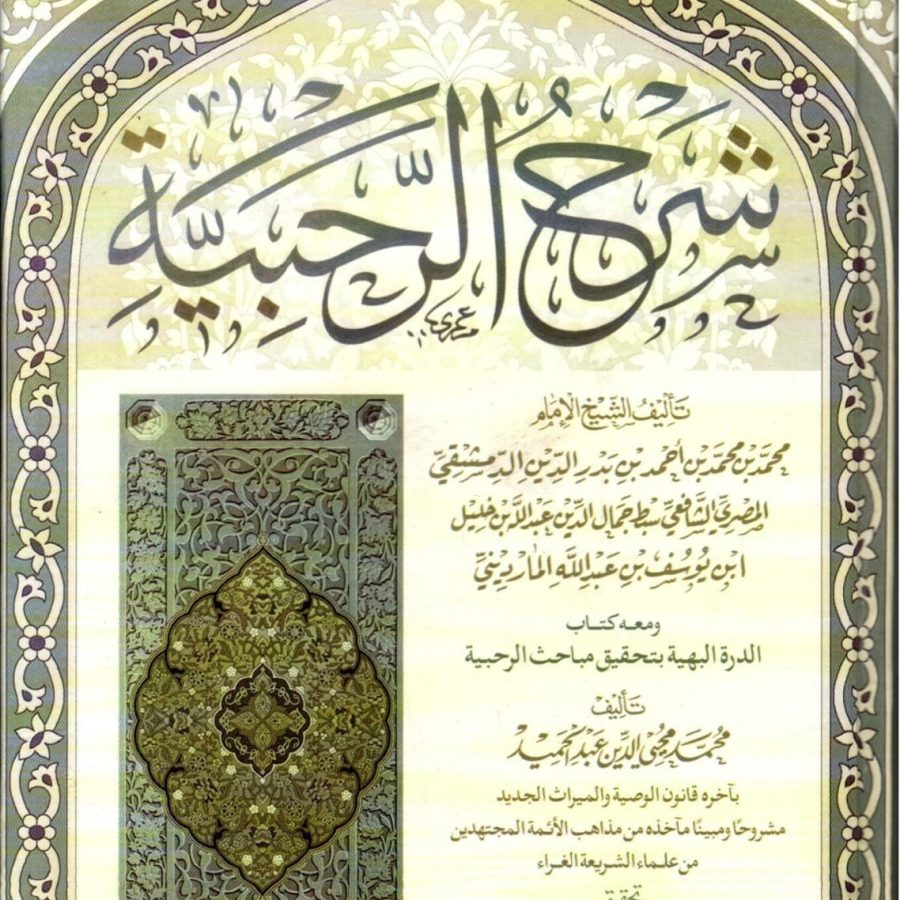 شَرْحُ الرَّحَبِيَّةِ
تَأليفُ الشَّيْخِ الإمَام
محمَّد بْن محمَّد بْن أحمَد بْنِ بَدْرِ الدِّينِ الدِّمَشْقِيِّ
المِصْرِيِّ الشَّافِعِيِّ سِبط جَمَال الدِّيْن عَبْد اللَّه بْن خَليْل
ابْن يُوسُف بْنِ عَبْدِ اللَّه المَاردِينيِّ
ومعه كتاب
الدرة البهية بتحقيق مباحث الرحبية
تَأليفُ
مُحمَّد محْيي الدِّين عَبْد الحَميد
بآخره قانون الوصية والميراث الجديد
مشروحًا ومبينًا مآخذه من مذاهب الأئمة المجتهدين
من علماء الشريعة الغراء